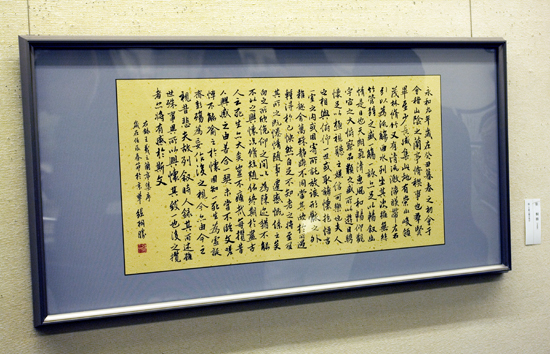 永和九年歲在癸丑暮春之初會于
會稽山陰之蘭亭修禊事也羣賢
畢至少長咸集此地有崇山峻領
茂林脩竹又有清流激湍暎帶左右
引以為流觴曲水列坐其次雖無絲
竹管絃之盛一觴一詠亦足以暢敘幽
情是日也天朗氣清惠風和暢仰觀
宇宙之大俯察品類之盛所以遊目騁
懷足以極視聽之娛信可樂也夫人
之相與俯仰一世或取諸懷抱悟言
一室之內或因寄所託放浪形骸之外
雖趣舍萬殊靜躁不同當其欣於所遇
暫得於己快然自足不知老之將至及
其所之既惓情隨事遷感慨係之矣
向之所欣俛仰之間以為陳迹猶不能
不以之興懷況脩短隨化終期於盡古
人云死生亦大矣豈不痛哉每攬昔
人興感之由若合一契未嘗不臨文嗟
悼不能喻之於懷固知一死生為虛誕
齊彭殤為妄作後之視今亦由今之
視昔悲夫故列敘時人錄其所述雖
世殊事異所以興懷其致一也後之攬
者亦將有感於斯文
右錄王羲之蘭亭集序
歲在春節於京華